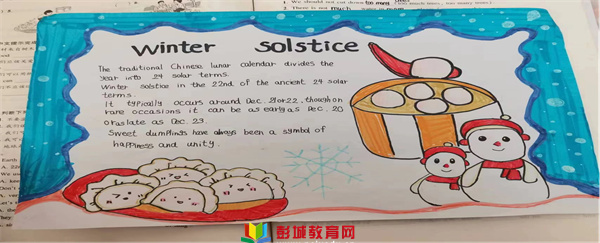 We should not cut down too many
There is not much
Winter Solstice
The traditional Chinese lunar calendar divides the
year into 24 solar terms.
Winter solstice in the 22nd of the ancient 24 solar
terms.
It typically occurs around Dec. 21 or 22, though on
rare occasions it can be as early as Dec. 20
or as late as Dec. 23.
Sweet dumplints have always been a symbol of
happiness and unity.
Earth
彭城教育网